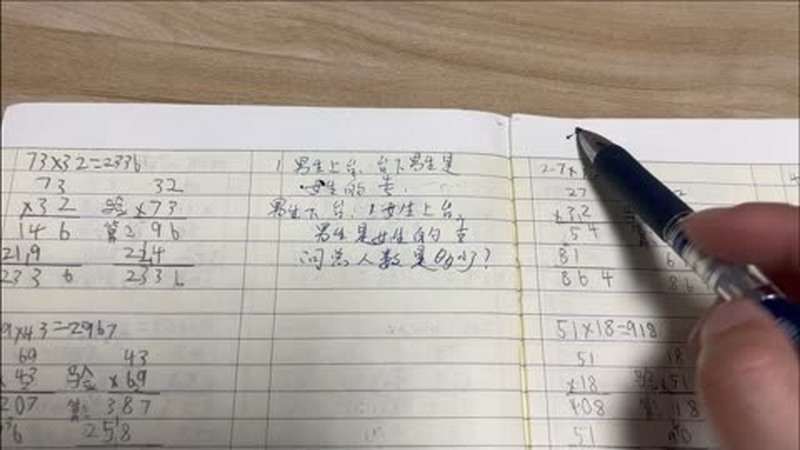 73×32=2336
73
×32
146
21,9
2336
32
验 ×73
算: 96
224
2336
9×43=2967
69
43
207
6
43
验 ×69
算: 387
258
1 男生上台,台下男生是
女生的
男生下台,1女生上台,
男生是女生的
问总人数是多少?
27×
27
×32
54
81
864
51×18=918
51
×18
408
51
18
验 ×51
算: 18